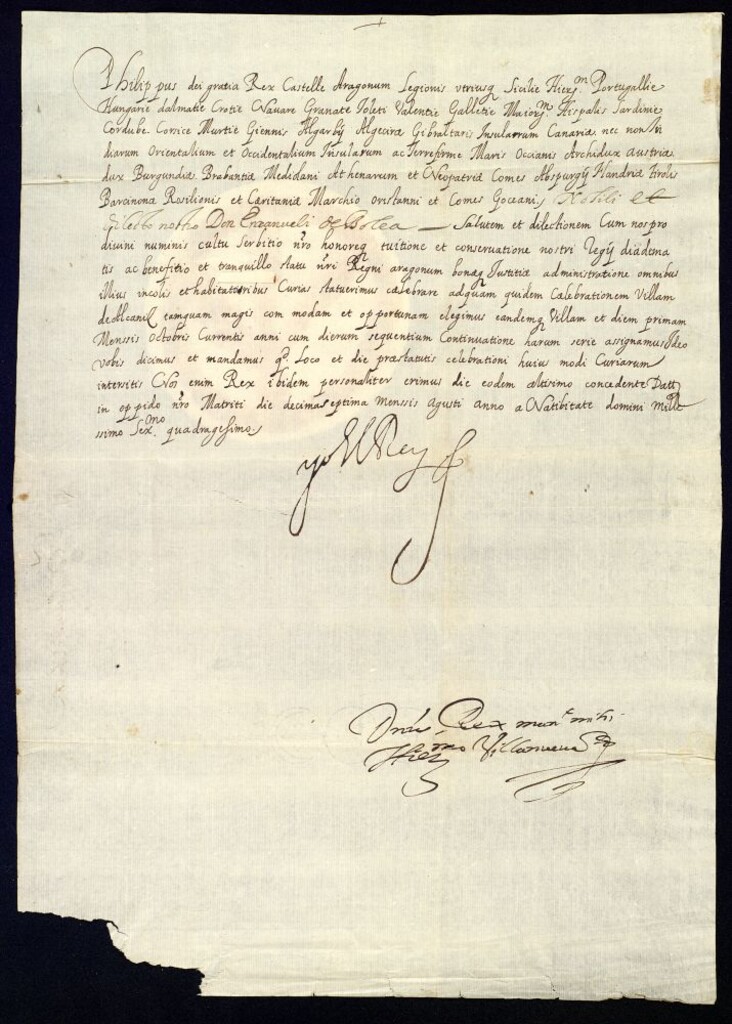 Philippus dei gratia Rex Castelle Aragonum Legionis vtriusq Sicilie Hierm Portugallie
Hungarie dalmatie Crotie Nauare Granate Toleti Valentie Galletie Maiorm Hispalis Sardinie
Cordube Corice Murtie Giennis Algarbij Algecira Gibraltaris Insularum Canariæ nec non In
diarum Orientalium et Occidentalium Insularum ac Terrefirme Maris Occianis Archidux austriæ
dux Burgundiæ Brabantiæ Medidani Athenarum et Neopatriæ Comes Abspurgij Flandriæ Tirolis
Barcinona Rosilionis et Cæritaniæ Marchio oristanni et Comes Goceanis Nobili et
dilecto nostro Don Emanueli de Bolea Salutem et dilectionem Cum nos pro
diuini numinis cultu Serbitio nro honoreq tuitione et conseruatione nostri Regij diadema
tis ac benefitio et tranquillo statu nri Regni aragonum bonaq Iustitiæ administratione omnibus
illius incolis et habitatoribus Curias statuerimus cælebrare adquam quidem Cælebrationem Villam
de Alcaniz tamquam magis com modam et opportunam elegimus eandemq Villam et diem primam
Menssis Octobris Currentis anni cum dierum sequentium Continuatione harum serie assignamus Ideo
vobis dicimus et mandamus q. Loco et die præstatutis celebrationi huius modi Curiarum
intersitis Nos enim Rex ibidem personaliter erimus die eodem altisimo concedente Datt
in oppido nro Matriti die decimaseptima menssis agusti anno a Natibitate domini mille
ssimo Sexmo quadragesimo
yo El Rey
Dnus Rex mant mihi
Hiermo Villanueua